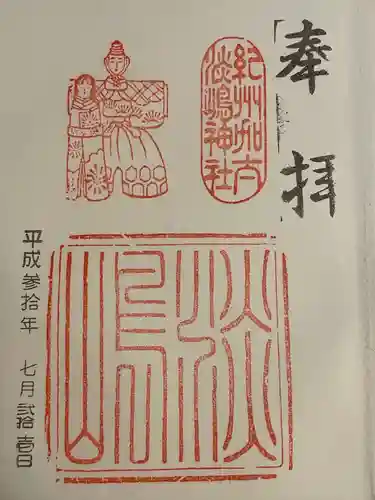 奉拝
紀州加太
淡嶋神社
淡嶋
平成参拾年 七月弐拾壱日